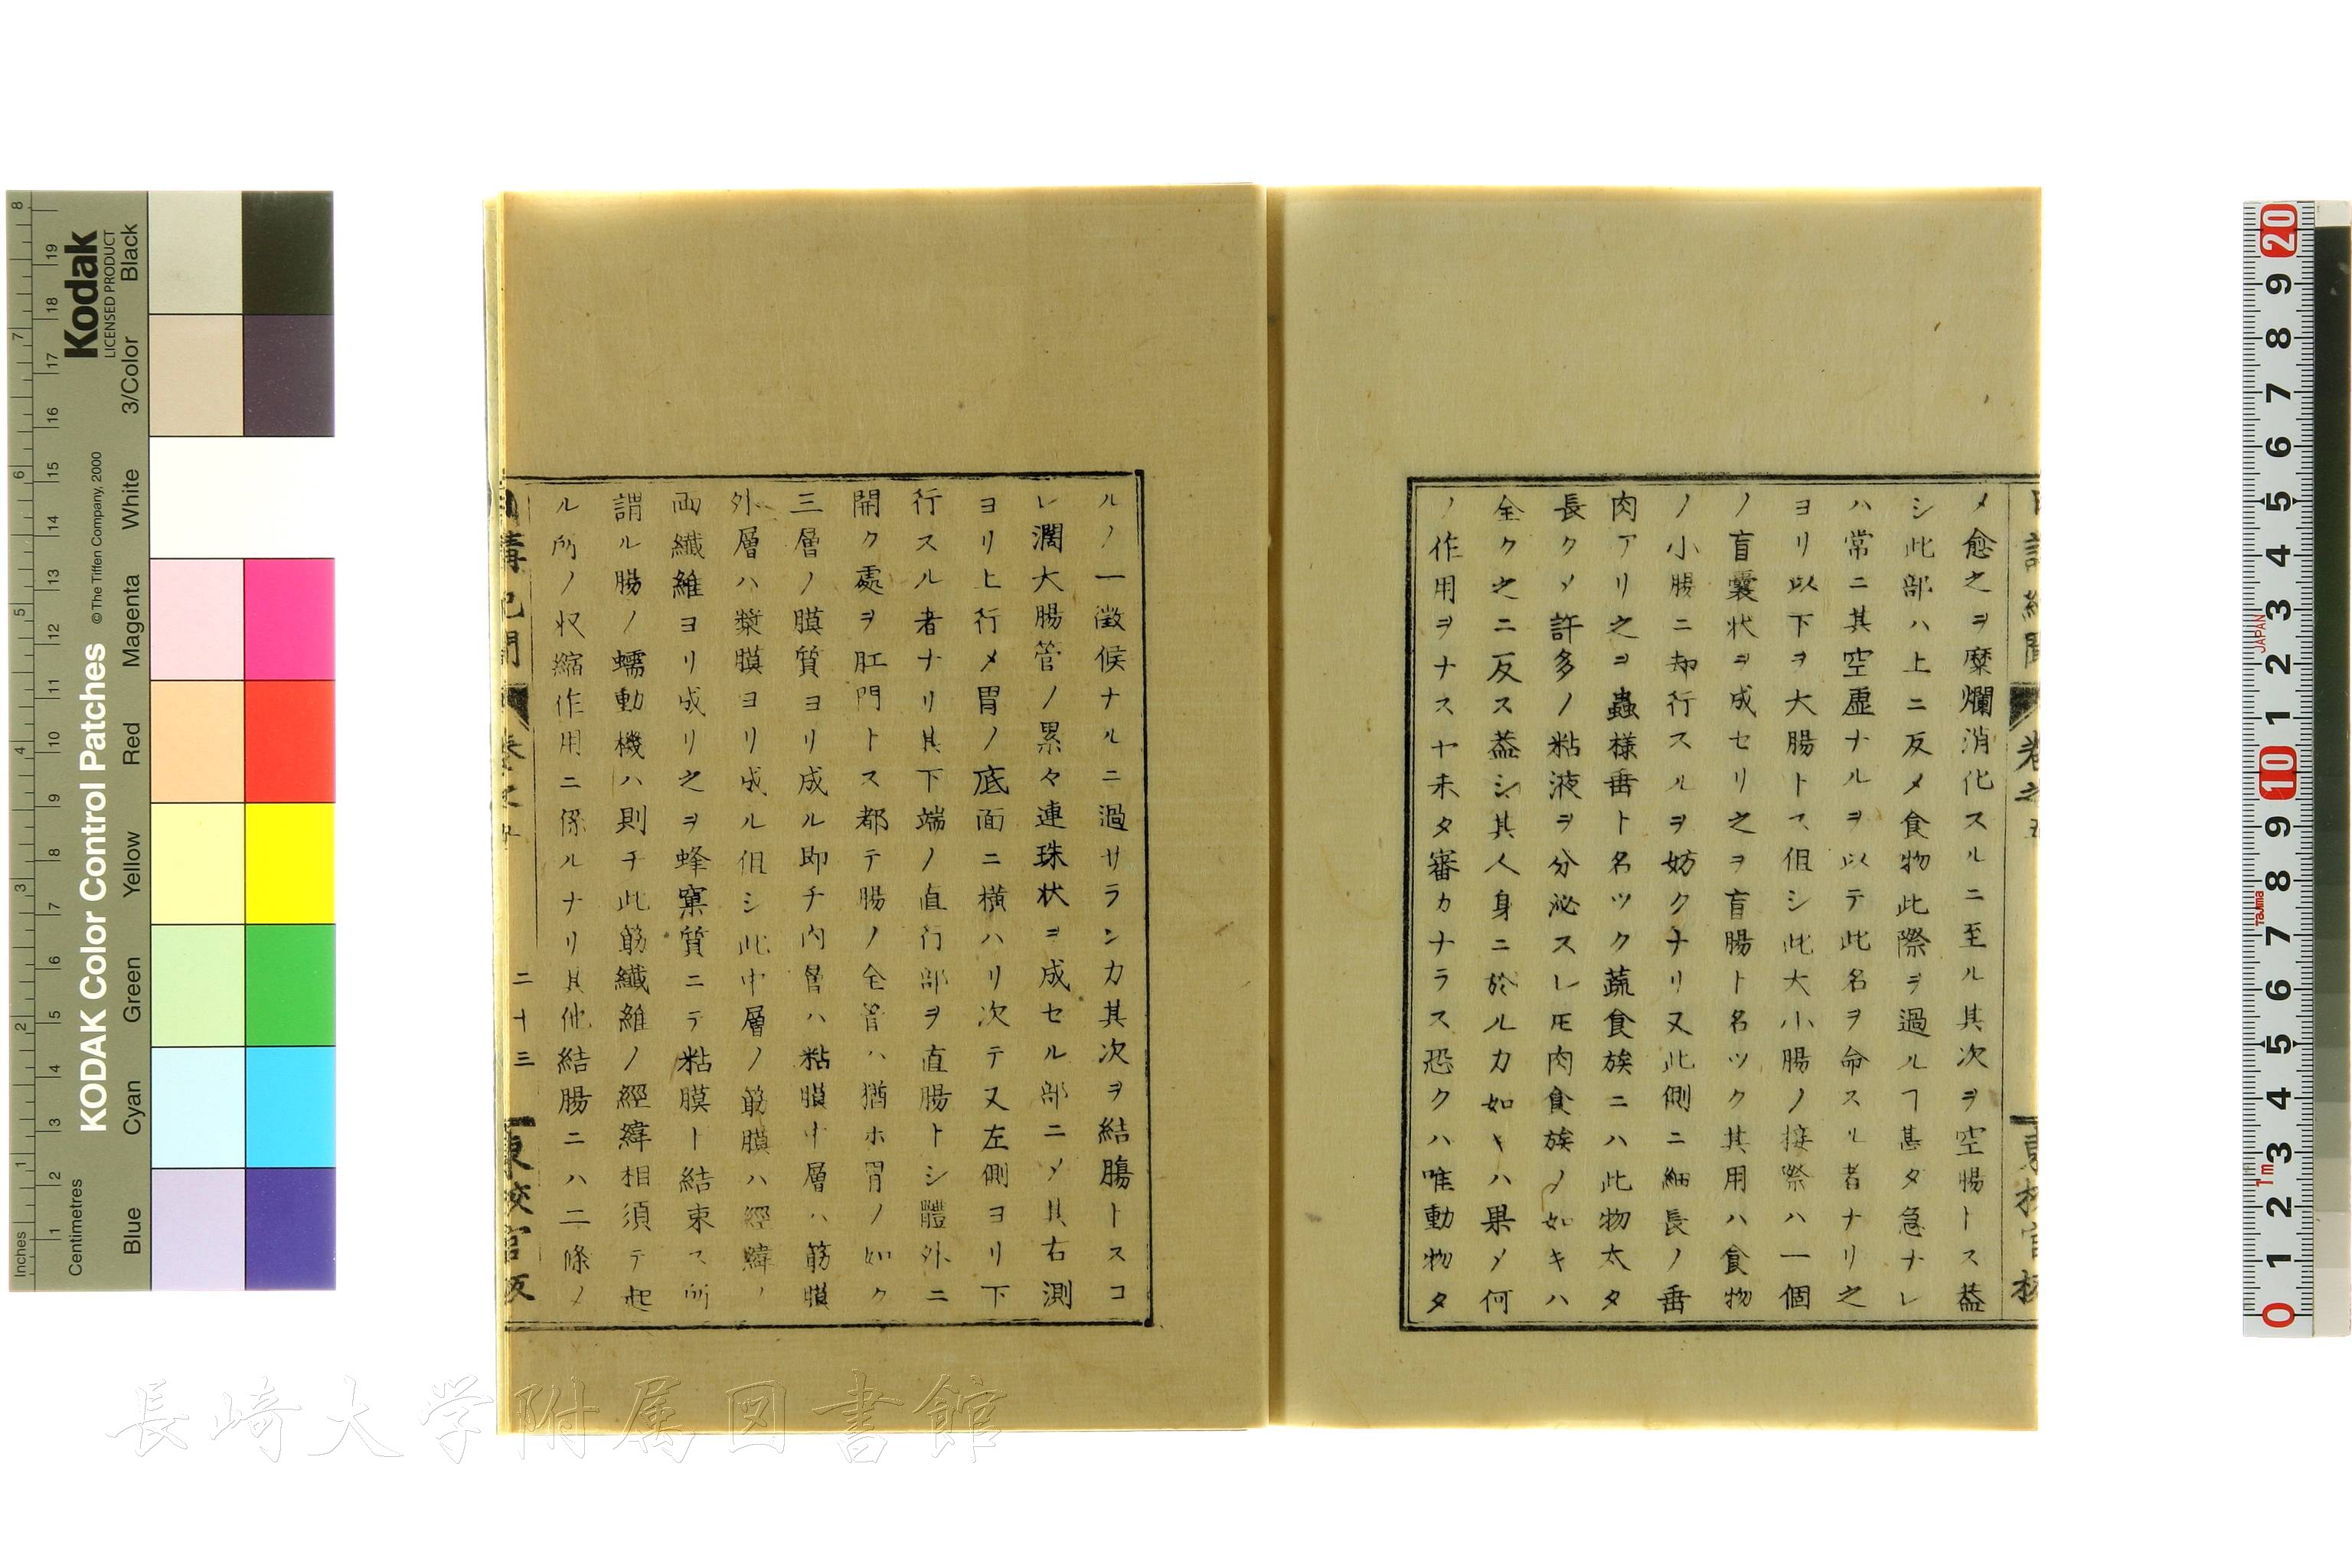 メ愈之ヲ糜爛消化スルニ至ル其次ヲ空腸トス葢
シ此部ハ上ニ反メ食物此際ヲ過ルヿ甚タ急ナレ
ハ常ニ其空虛ナルヲ以テ此名ヲ命スル者ナリ之
ヨリ以下ヲ大腸トス但シ此大小腸ノ接際ハ一個
ノ盲囊状ヲ成セリ之ヲ盲腸ト名ツク其用ハ食物
ノ小腸ニ却行スルヲ妨クナリ又此側ニ細長ノ垂
肉アリ之ヲ蟲様垂ト名ツク蔬食族ニハ此物太タ
長クメ許多ノ粘液ヲ分泌スレ𪜈肉食族ノ如キハ
全ク之ニ反ス葢シ其人身ニ於ルカ如キハ果メ何
ノ作用ヲナスヤ未タ審カナラス恐クハ唯動物タ
ルノ一徴候ナルニ過サランカ其次ヲ結腸トスコ
レ濶大腸管ノ累々連珠状ヲ成セル部ニメ其右測
ヨリ上行メ胃ノ底面ニ横ハリ次テ又左側ヨリ下
行スル者ナリ其下端ノ直行部ヲ直腸トシ體外ニ
開ク處ヲ肛門トス都テ腸ノ全管ハ猶ホ胃ノ如ク
三層ノ膜質ヨリ成ル即チ内層ハ粘膜中層ハ筋膜
外層ハ漿膜ヨリ成ル但シ此中層ノ筋膜ハ經緯ノ
両纖維ヨリ成リ之ヲ蜂窠質ニテ粘膜ト結束ス所
謂ル腸ノ蠕動機ハ則チ此筋纖維ノ經緯相須テ起
ル所ノ収縮作用ニ係ルナリ其他結腸ニハ二條ノ
二十三
東校官板
KODAK Color Control Patches
© The Tiffen Company, 2000
Kodak
LICENSED PRODUCT
Inches
Centimetres
Blue
Cyan
Green
Yellow
Red
Magenta
White
3/Color
Black
JAPAN
Tajima
1m
長崎大学附属図書館